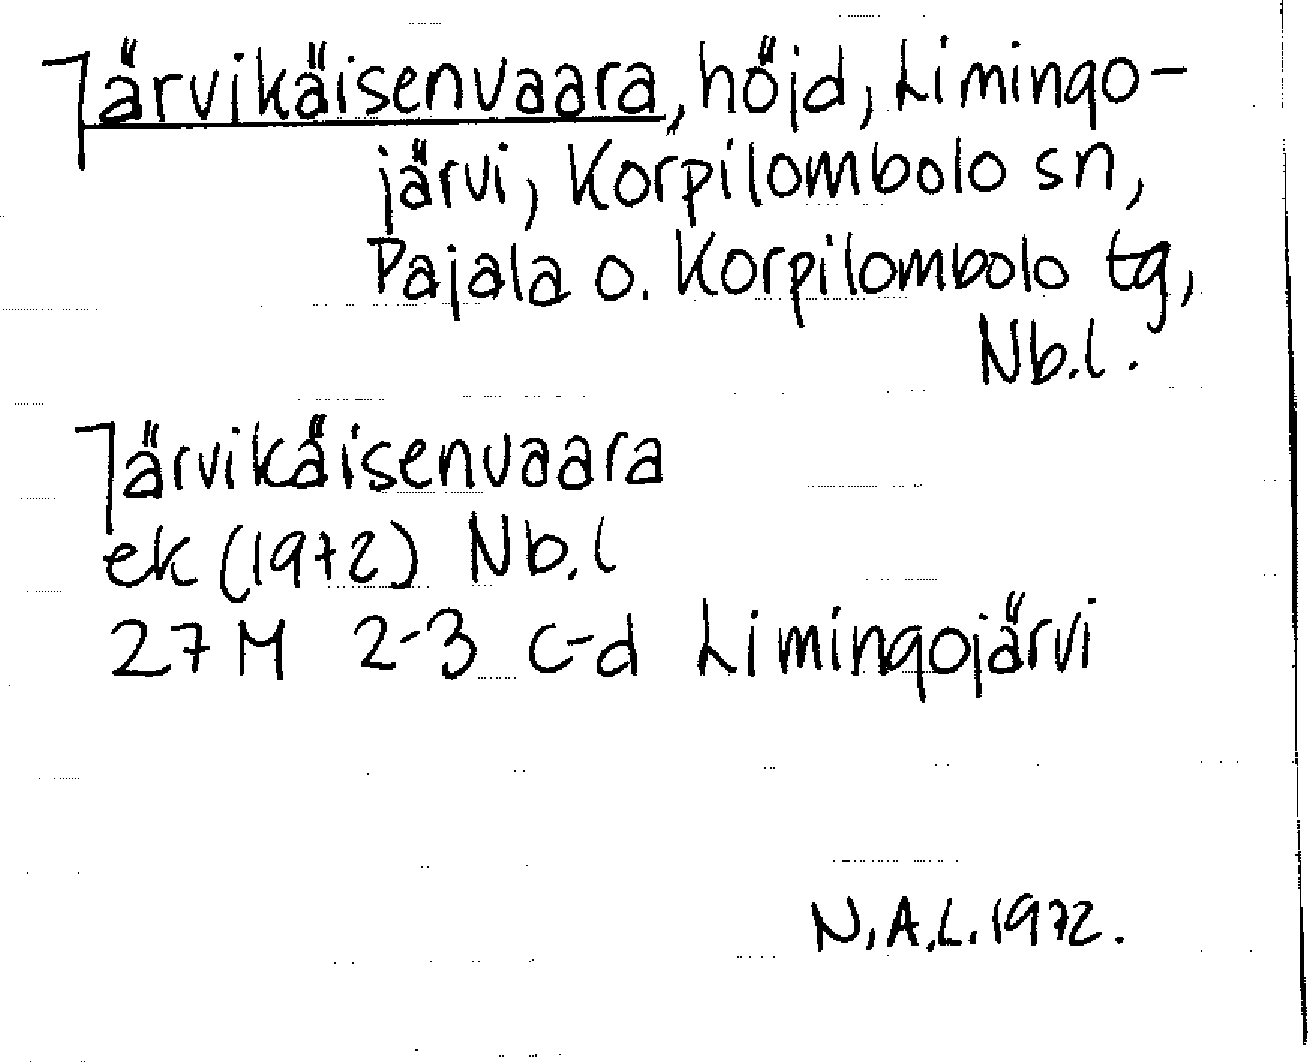 Järvikäisenvaara, höjd, Limingo-
järvi, Korpilombolo sn,
Pajala o. Korpilombolo tg,
Nb.l.
Järvikäisenvaara
ek (1972) Nb.l
27 M 2-3 c-d Limingojärvi
N.A.L. 1972.